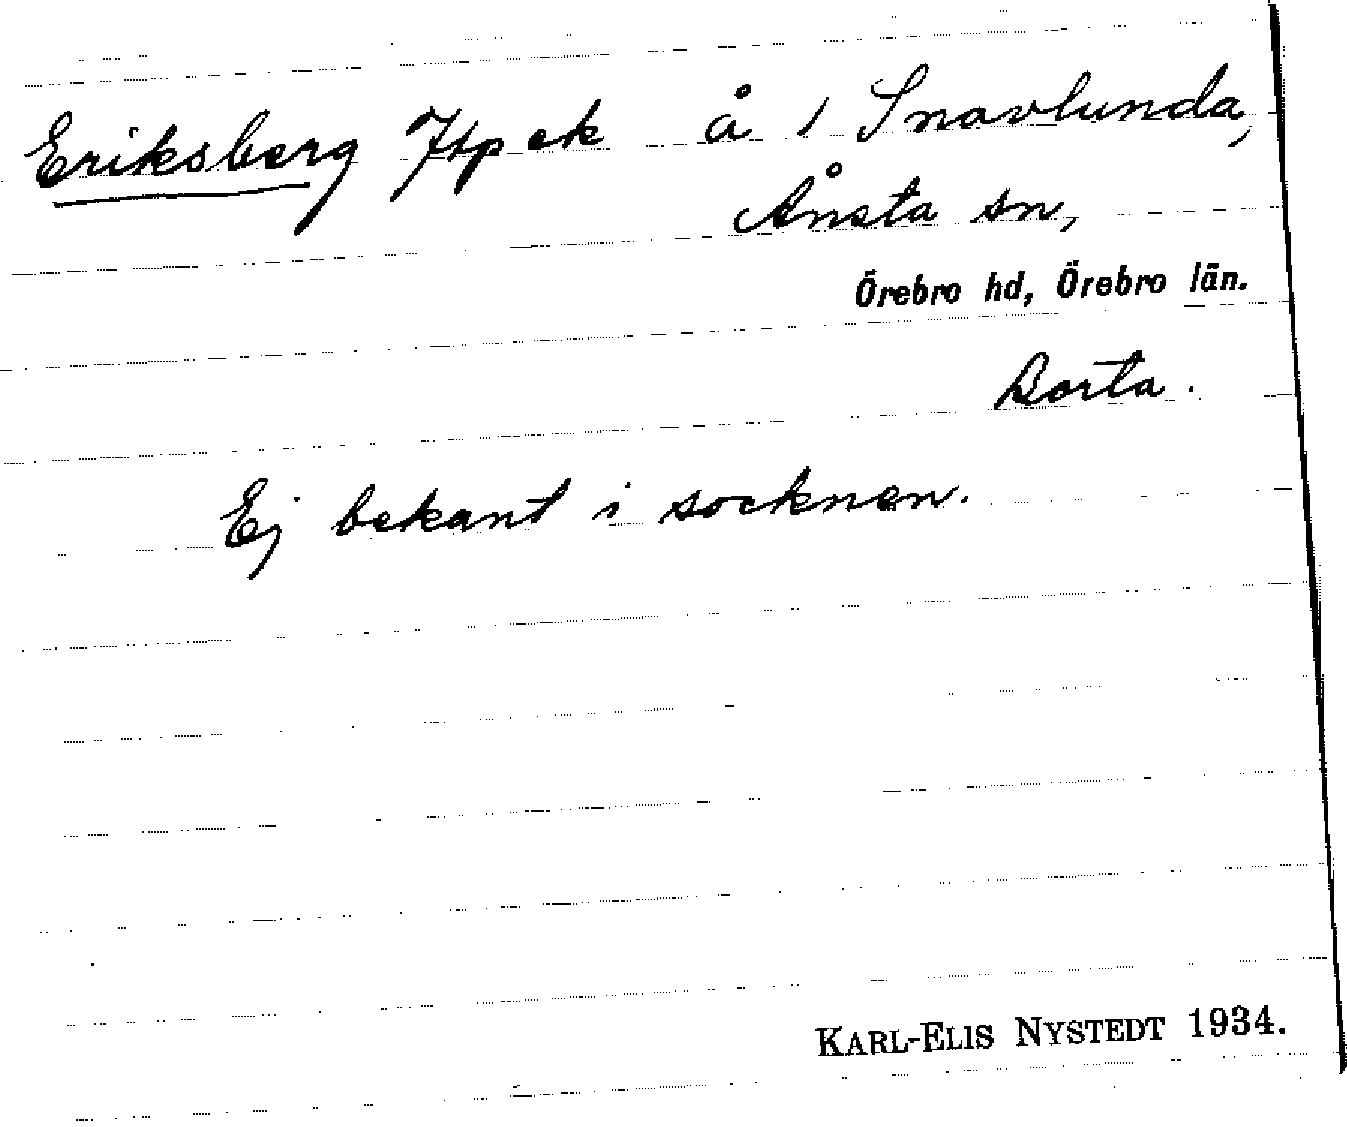 Eriksberg Jtp ek å 1 Snavlunda,
Ånsta sn,
Örebro hd, Örebro län.
Borta.
Ej bekant i socknen.
KARL-ELIS NYSTEDT 1934.